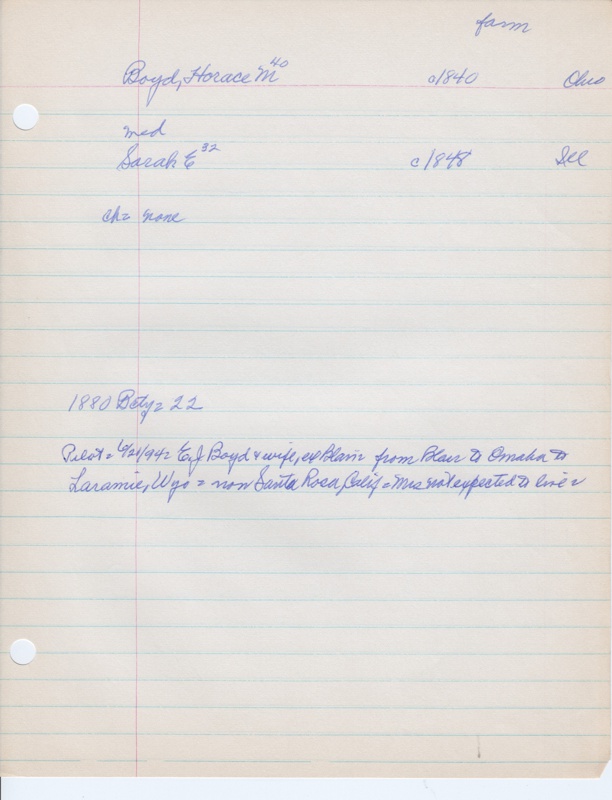 farm
Boyd, Horace M 40 c1840 Ohio
md
Sarah E 32 c1848 Ill
ch= none
1880 Bcty= 22
Pilot= /21/942 E.J Boyd & wife, ex Blair= from Blair to Omaha to
Laramie, Wyo = now Santa Rosa, Calif = Mrs not expected to live=